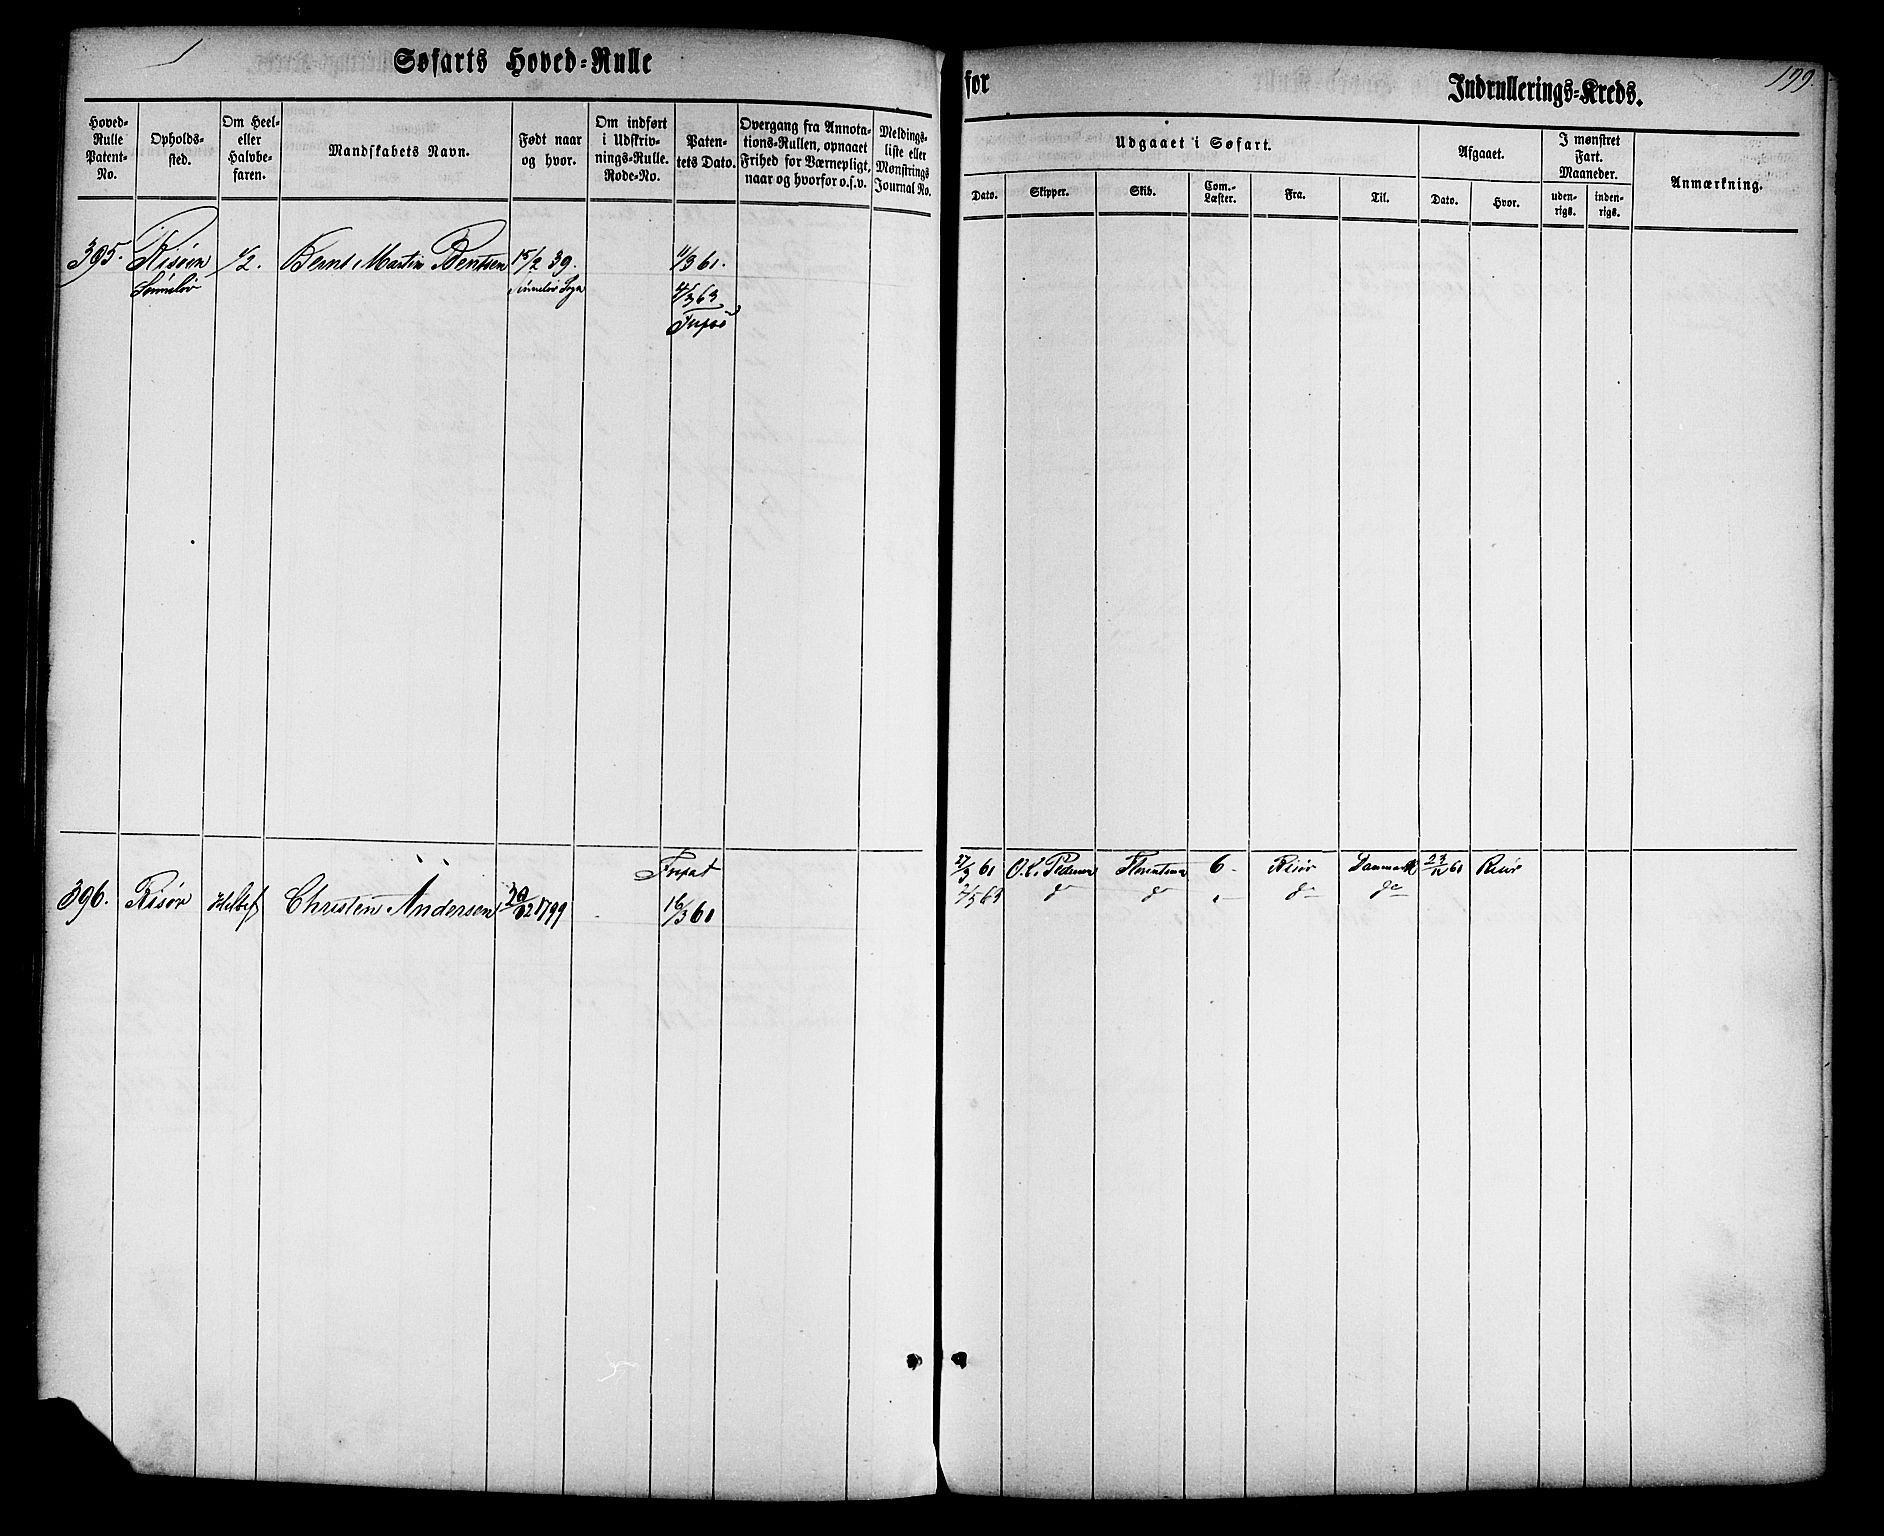 Søfarts Hoved=Rulle
for
Indrullerings=Kreds.
199.
Hoved=
Rulle
Patent=
No.
Opholds=
sted.
Om Heel=
eller
Halvbe=
faren.
Mandskabets Navn.
Født naar
og hvor.
Om indført
i Udskriv=
nings=Rulle.
Rode=No.
Paten=
tets Dato.
Overgang fra Annota=
tions=Rullen, opnaaet
Frihed for Værnepligt,
naar og hvorfor o.s.v.
Meldings=
liste eller
Mønstrings
Journal No.
Udgaaet i Søfart.
Dato.
Skipper.
Skib.
Com.=
Læster.
Fra.
Til.
Afgaaet.
Dato.
Hvor.
I mønstret
Fart.
Maaneder.
uden=
rigs.
inden=
rigs.
Anmærkning.
395. Risøen 1/2. Bernt Martin Bentsen 15/2 39. 11/3 61.
Sønneløv Sønneløv Sogn 4/3 63
396. Risør Helbef Christen Andersen 20/12 1799 16/3 61
27/3 61 O. L. Pedersen 6. Risør Danmark 23/12 61 Risør
2/5 63 do do do do